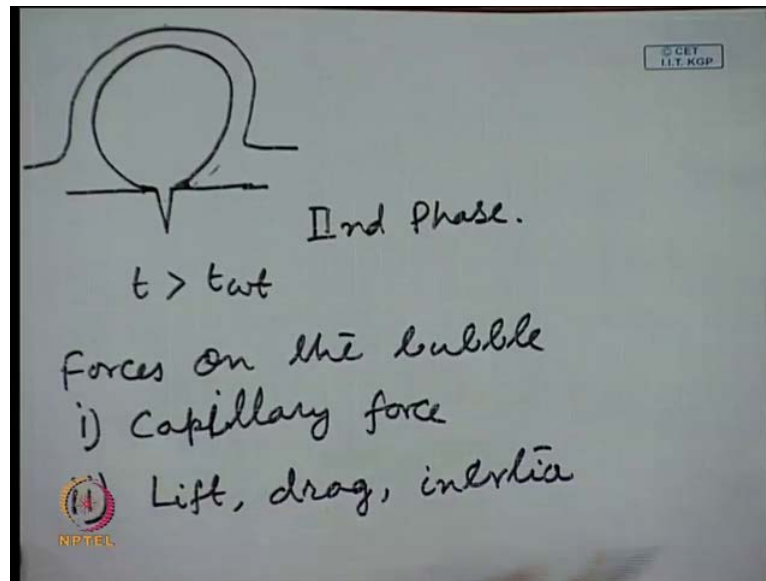 © CET
I.I.T. KGP
IInd Phase.
t > twt
Forces on the bubble
i) Capillary force
ii) Lift, drag, inertia
NPTEL